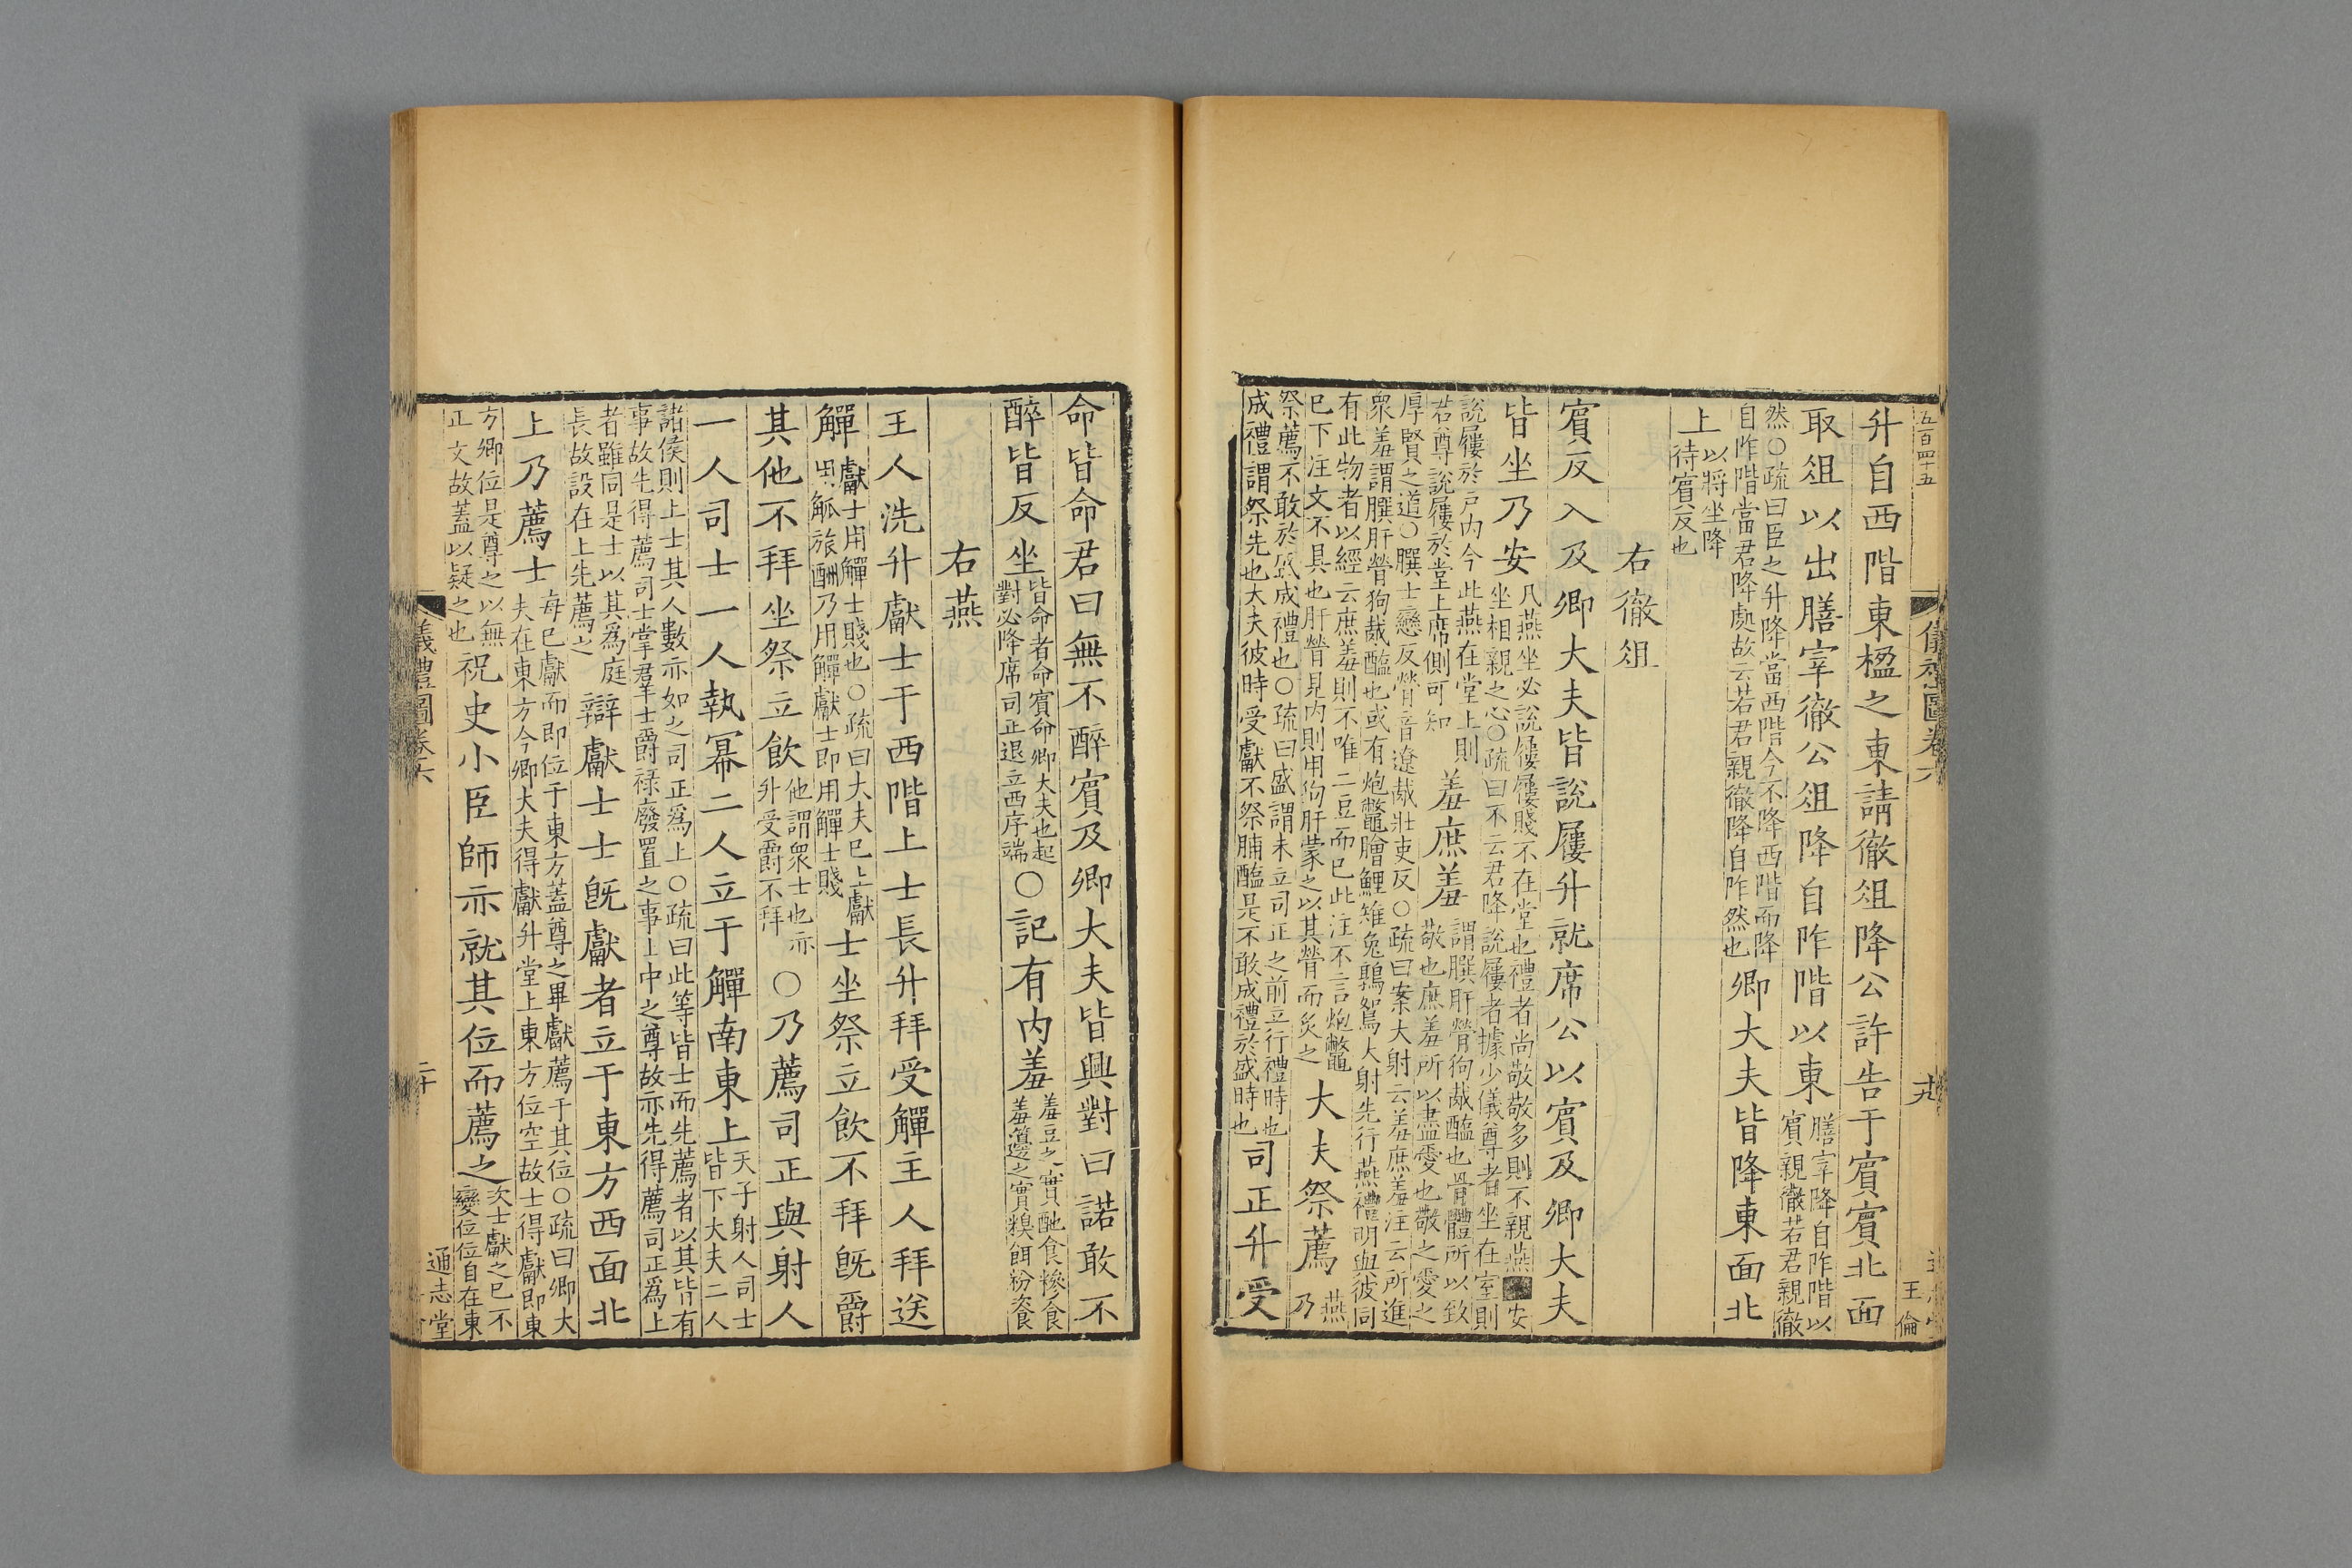 五百四十五
升自西階東楹之東請徹俎降公許告于賓賓北面
取俎以出膳宰徹公俎降自阼階以東膳宰降自阼階以
賓親徹若君親徹
然○疏曰臣之升降當西階今不降西階而降
自阼階當君降處故云若君親徹降自阼然也卿大夫皆降東面北
上以將坐降
待賓反也
右徹俎
賓反入及卿大夫皆說屨升就席公以賓及卿大夫
皆坐乃安凡燕坐必說屨屨賤不在堂也禮者尚敬敬多則不親燕安
坐相親之心○疏曰不云君降說屨者據少儀尊者坐在室則
說屨於戶內今此燕在堂上則
君尊說屨於堂上席側可知羞庶羞謂膮肝膋狗胾醢也骨體所以致
敬也庶羞所以盡愛也敬之愛之
厚賢之道○膮士戀反膋音遼胾壯吏反○疏曰案大射云羞庶羞注云所進
眾羞謂膮肝膋狗胾醢也或有炮鼈膾鯉雉兔鶉鴽大射先行燕禮明與彼同
有此物者以經云庶羞則不唯二豆而已此注不言炮鼈
已下注文不具也肝膋見內則用狗肝蒙之以其膋而炙之大夫祭薦燕
乃
祭薦不敢於盛成禮也○疏曰盛謂未立司正之前立行禮時也
成禮謂祭先也大夫彼時受獻不祭脯醢是不敢成禮於盛時也司正升受
儀禮圖卷六
十九
王倫
命皆命君曰無不醉賓及卿大夫皆興對曰諾敢不
醉皆反坐皆命者命賓命卿大夫也起
對必降席司正退立西序端○記有內羞羞豆之實酏食糝食
羞籩之實糗餌粉餈
右燕
主人洗升獻士于西階上士長升拜受觶主人拜送
觶獻士用觶士賤也○疏曰大夫已上獻
用觚旅酬乃用觶獻士即用觶士賤士坐祭立飲不拜既爵
其他不拜坐祭立飲他謂眾士也亦
升受爵不拜○乃薦司正與射人
一人司士一人執冪二人立于觶南東上天子射人司士
皆下大夫二人
諸侯則上士其人數亦如之司正為上○疏曰此等皆士而先薦者以其皆有
事故先得薦司士掌群士爵祿廢置之事士中之尊故亦先得薦司正為上
者雖同是士以其為庭
長故設在上先薦之辯獻士士既獻者立于東方西面北
上乃薦士每已獻而即位于東方蓋尊之畢獻薦于其位○疏曰卿大
夫在東方今卿大夫得獻升堂上東方位空故士得獻即東
方卿位是尊之以無
正文故蓋以疑之也祝史小臣師亦就其位而薦之次士獻之已不
變位位自在東
儀禮圖卷六
二十
通志堂